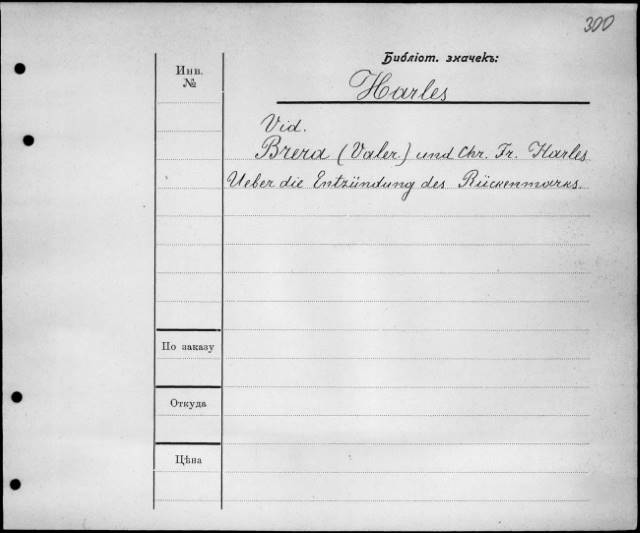 300
Библіот. значекъ:
Инв.
№
Harles
Vid.
Brera (Valer.) und Chr. Fr. Harles
Ueber die Entzündung des Rückenmarks.
По заказу
Откуда
Цѣна